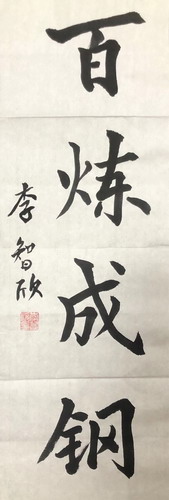 百炼成钢
李智欣